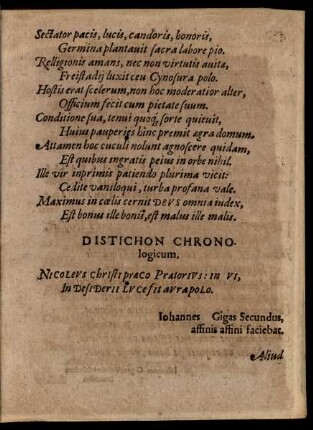 Sectator pacis, lucis, candoris, honoris,
Germina plantauit sacra labore pio.
Relligionis amans, nec non virtutis auita,
Freistadij luxit ceu Cynosura polo.
Hostis erat scelerum, non hoc moderatior alter,
Officium fecit cum pietate suum.
Conditione sua, tenui quoq; sorte quieuit,
Huius pauperies hinc premit ægra domum.
Attamen hoc cuculi nolunt agnoscere quidam,
Est quibus ingratis peius in orbe nihil.
Ille vir inprimis patiendo plurima vicit:
Cedite vaniloqui, turba profana vale.
Maximus in cœlis cernit DEVS omnia iudex,
Est bonus ille bonis, est malus ille malis.
DISTICHON CHRONO-
logicum.
NICOLEVS ChrIstI præCo PrætorIVs: In VI,
In DesIDerII LVCe fIt aVrapoLo.
Iohannes Gigas Secundus,
affinis affini faciebat.
Aliud